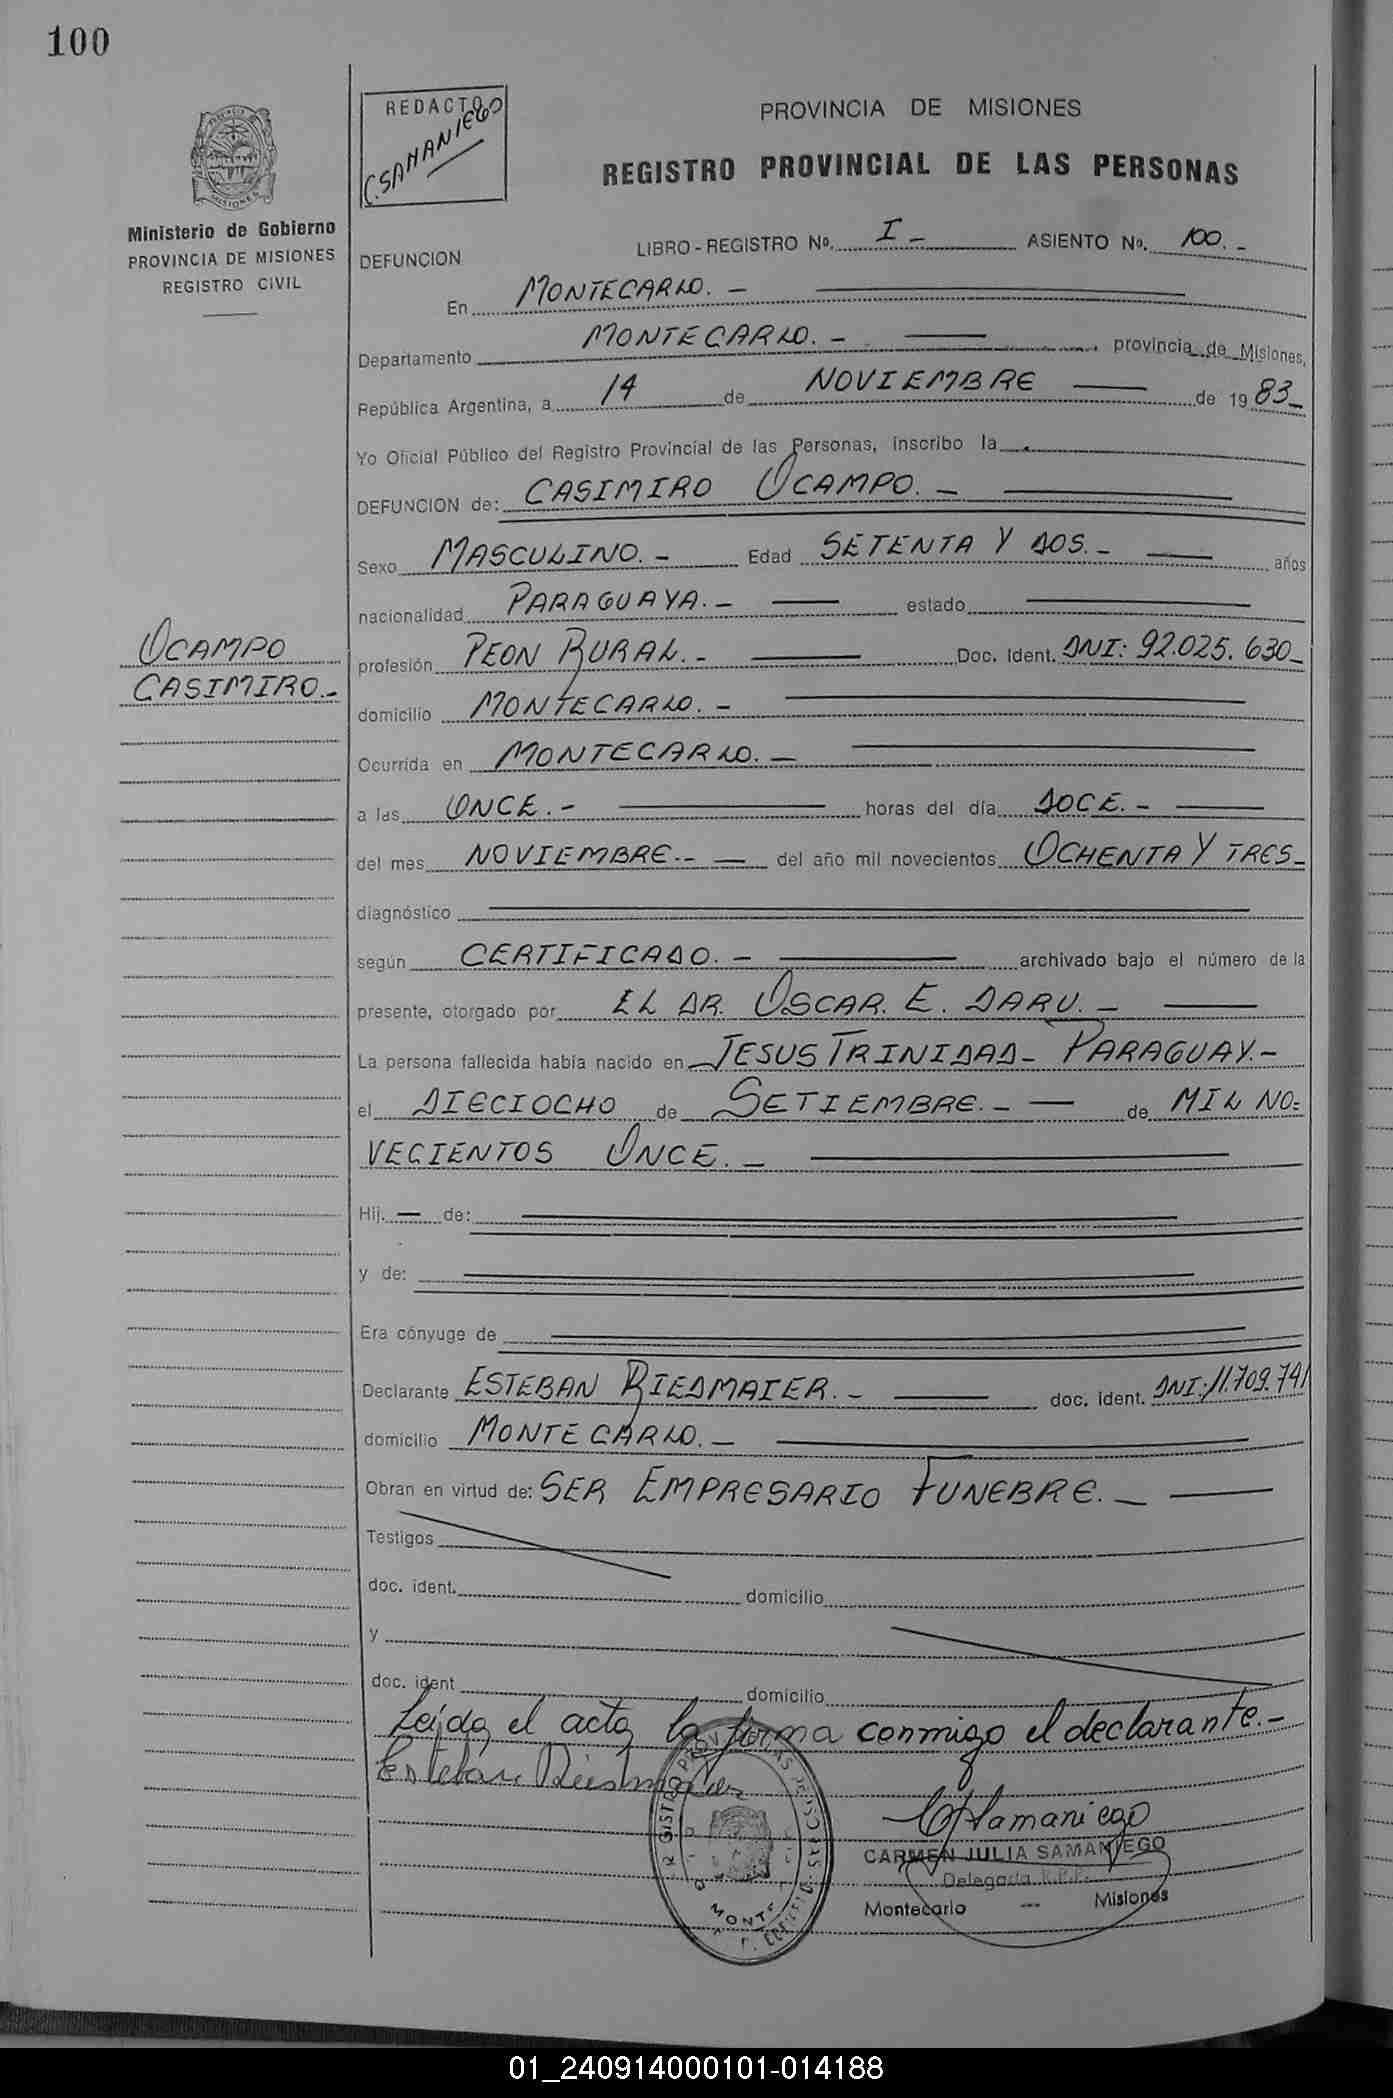 100
REDACTO
C. SAMANIEGO
PROVINCIA DE MISIONES
REGISTRO PROVINCIAL DE LAS PERSONAS
MISIONES
Ministerio de Gobierno
PROVINCIA DE MISIONES
REGISTRO CIVIL
DEFUNCION
LIBRO - REGISTRO Nº. I - ASIENTO Nº. 100. -
En MONTECARLO. -
Departamento MONTECARLO. - provincia de Misiones,
República Argentina, a 14 de NOVIEMBRE de 1983-
Yo Oficial Público del Registro Provincial de las Personas, inscribo la
DEFUNCION de: CASIMIRO OCAMPO. -
Sexo MASCULINO. - Edad SETENTA Y DOS. - años
nacionalidad PARAGUAYA. - estado
OCAMPO
CASIMIRO. -
profesión PEON RURAL. - Doc. Ident. DNI: 92.025.630-
domicilio MONTECARLO. -
Ocurrida en MONTECARLO. -
a las ONCE. - horas del día DOCE. -
del mes NOVIEMBRE. - del año mil novecientos OCHENTA Y TRES-
diagnóstico
según CERTIFICADO. - archivado bajo el número de la
presente, otorgado por EL DR. OSCAR. E. DARU. -
La persona fallecida había nacido en JESUS TRINIDAD - PARAGUAY. -
el DIECIOCHO de SETIEMBRE. - de MIL NO=
VECIENTOS ONCE. -
Hij. — de:
y de:
Era cónyuge de
Declarante ESTEBAN RIEDMAIER. - doc. ident. DNI: 11.709.741
domicilio MONTECARLO. -
Obran en virtud de: SER EMPRESARIO FUNEBRE. -
Testigos
doc. ident. domicilio
y
doc. ident domicilio
Leída el acta, la firma conmigo el declarante. -
Esteban Riedmaier
CSamaniego
CARMEN JULIA SAMANIEGO
Delegada R.P.P.
Montecarlo --- Misiones
01_240914000101-014188